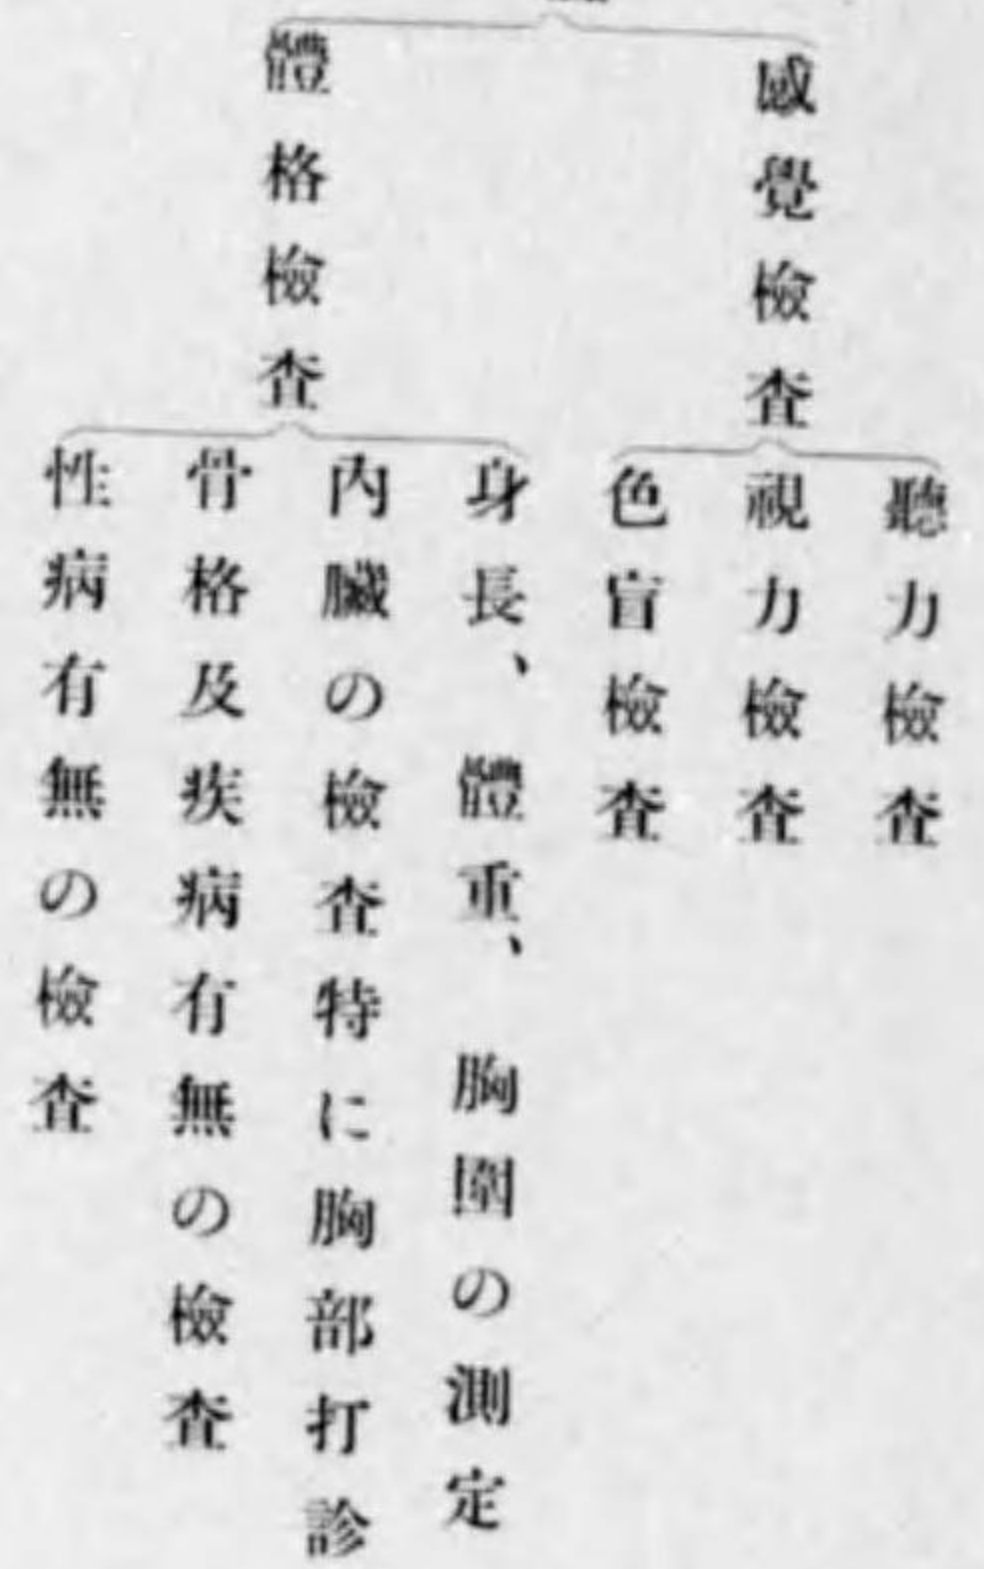 感覺檢査
聽力檢査
視力檢査
色盲檢査
體格檢査
身長、體重、胸圍の測定
內臟の檢査特に胸部打診
骨格及疾病有無の檢査
性病有無の檢査